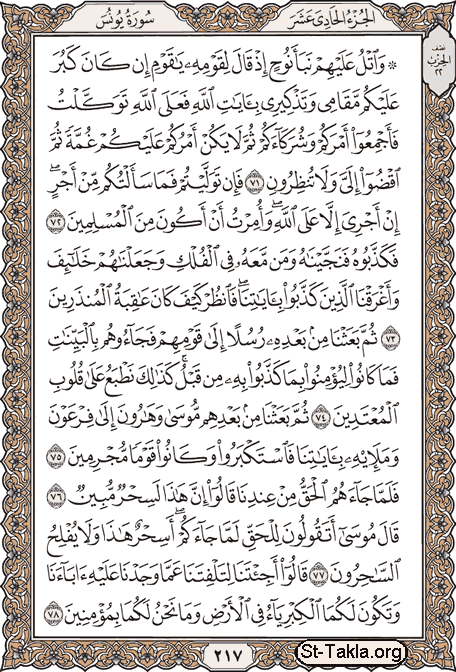 الجُزْءُ الحَادِى عَشَرَ
سُورَةُ يُونُس
نصف
الحزب
٢٢
۞ وَٱتۡلُ عَلَيۡهِمۡ نَبَأَ نُوحٍ إِذۡ قَالَ لِقَوۡمِهِۦ يَٰقَوۡمِ إِن كَانَ كَبُرَ
عَلَيۡكُم مَّقَامِي وَتَذۡكِيرِي بِـَٔايَٰتِ ٱللَّهِ فَعَلَى ٱللَّهِ تَوَكَّلۡتُ
فَأَجۡمِعُوٓاْ أَمۡرَكُمۡ وَشُرَكَآءَكُمۡ ثُمَّ لَا يَكُنۡ أَمۡرُكُمۡ عَلَيۡكُمۡ غُمَّةٗ ثُمَّ
ٱقۡضُوٓاْ إِلَيَّ وَلَا تُنظِرُونِ ٧١ فَإِن تَوَلَّيۡتُمۡ فَمَا سَأَلۡتُكُم مِّنۡ أَجۡرٍۖ
إِنۡ أَجۡرِيَ إِلَّا عَلَى ٱللَّهِۖ وَأُمِرۡتُ أَنۡ أَكُونَ مِنَ ٱلۡمُسۡلِمِينَ ٧٢
فَكَذَّبُوهُ فَنَجَّيۡنَٰهُ وَمَن مَّعَهُۥ فِي ٱلۡفُلۡكِ وَجَعَلۡنَٰهُمۡ خَلَٰٓئِفَ
وَأَغۡرَقۡنَا ٱلَّذِينَ كَذَّبُواْ بِـَٔايَٰتِنَاۖ فَٱنظُرۡ كَيۡفَ كَانَ عَٰقِبَةُ ٱلۡمُنذَرِينَ
٧٣ ثُمَّ بَعَثۡنَا مِنۢ بَعۡدِهِۦ رُسُلًا إِلَىٰ قَوۡمِهِمۡ فَجَآءُوهُم بِٱلۡبَيِّنَٰتِ
فَمَا كَانُواْ لِيُؤۡمِنُواْ بِمَا كَذَّبُواْ بِهِۦ مِن قَبۡلُۚ كَذَٰلِكَ نَطۡبَعُ عَلَىٰ قُلُوبِ
ٱلۡمُعۡتَدِينَ ٧٤ ثُمَّ بَعَثۡنَا مِنۢ بَعۡدِهِم مُّوسَىٰ وَهَٰرُونَ إِلَىٰ فِرۡعَوۡنَ
وَمَلَإِيْهِۦ بِـَٔايَٰتِنَا فَٱسۡتَكۡبَرُواْ وَكَانُواْ قَوۡمٗا مُّجۡرِمِينَ ٧٥
فَلَمَّا جَآءَهُمُ ٱلۡحَقُّ مِنۡ عِندِنَا قَالُوٓاْ إِنَّ هَٰذَا لَسِحۡرٞ مُّبِينٞ ٧٦
قَالَ مُوسَىٰٓ أَتَقُولُونَ لِلۡحَقِّ لَمَّا جَآءَكُمۡۖ أَسِحۡرٌ هَٰذَا وَلَا يُفۡلِحُ
ٱلسَّٰحِرُونَ ٧٧ قَالُوٓاْ أَجِئۡتَنَا لِتَلۡفِتَنَا عَمَّا وَجَدۡنَا عَلَيۡهِ ءَابَآءَنَا
وَتَكُونَ لَكُمَا ٱلۡكِبۡرِيَآءُ فِي ٱلۡأَرۡضِ وَمَا نَحۡنُ لَكُمَا بِمُؤۡمِنِينَ ٧٨
٢١٧
St-Takla.org